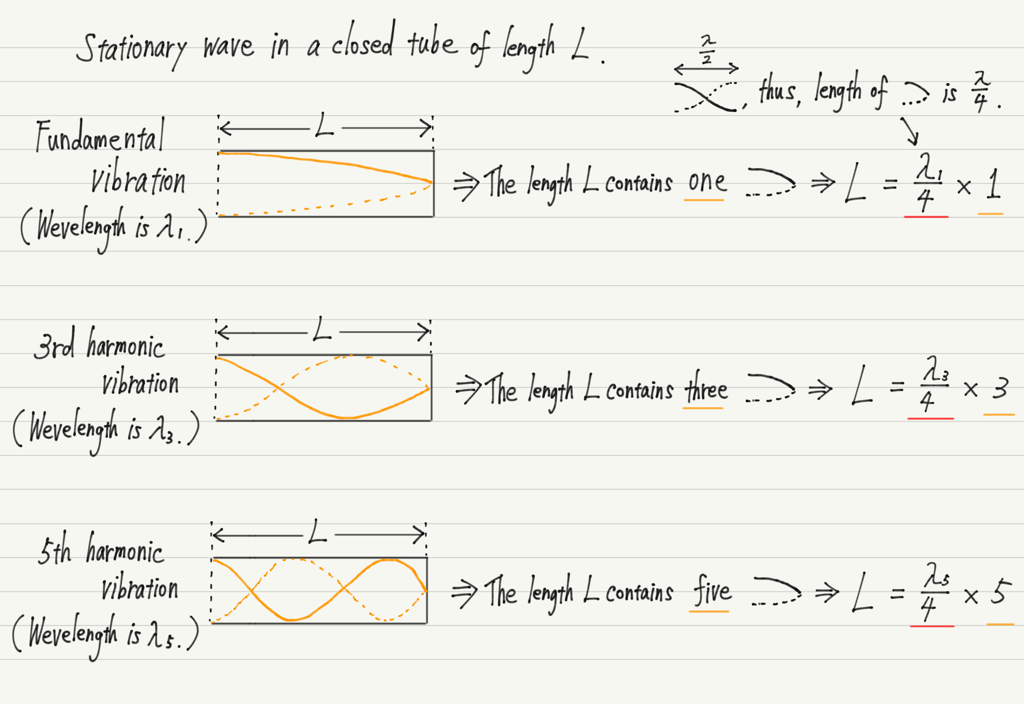 Stationary wave in a closed tube of length L.
λ/2
, thus, length of is λ/4.
Fundamental
vibration
(Wevelength is λ₁.)
L
⇒ The length L contains one ⇒ L = λ₁/4 × 1
3rd harmonic
vibration
(Wevelength is λ₃.)
L
⇒ The length L contains three ⇒ L = λ₃/4 × 3
5th harmonic
vibration
(Wevelength is λ₅.)
L
⇒ The length L contains five ⇒ L = λ₅/4 × 5